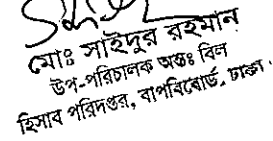 মোঃ সাইদুর রহমান
উপ-পরিচালক অন্তঃ বিল
হিসাব পরিদপ্তর, বাপবিবোর্ড, ঢাকা।